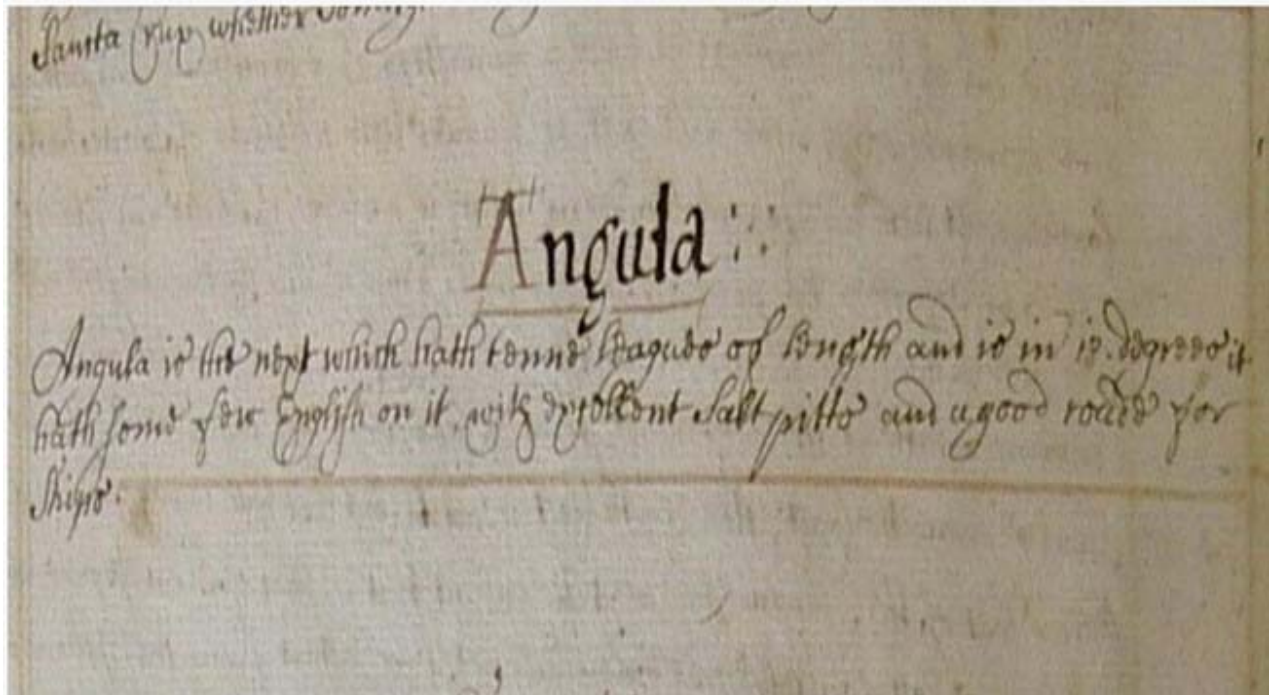 Santa Crux whether
Angula
Angula is the next which hath tenne leagues of length and is in 18. degrees it
hath some few English on it, with excellent Salt pitts and a good roade for
Ships.